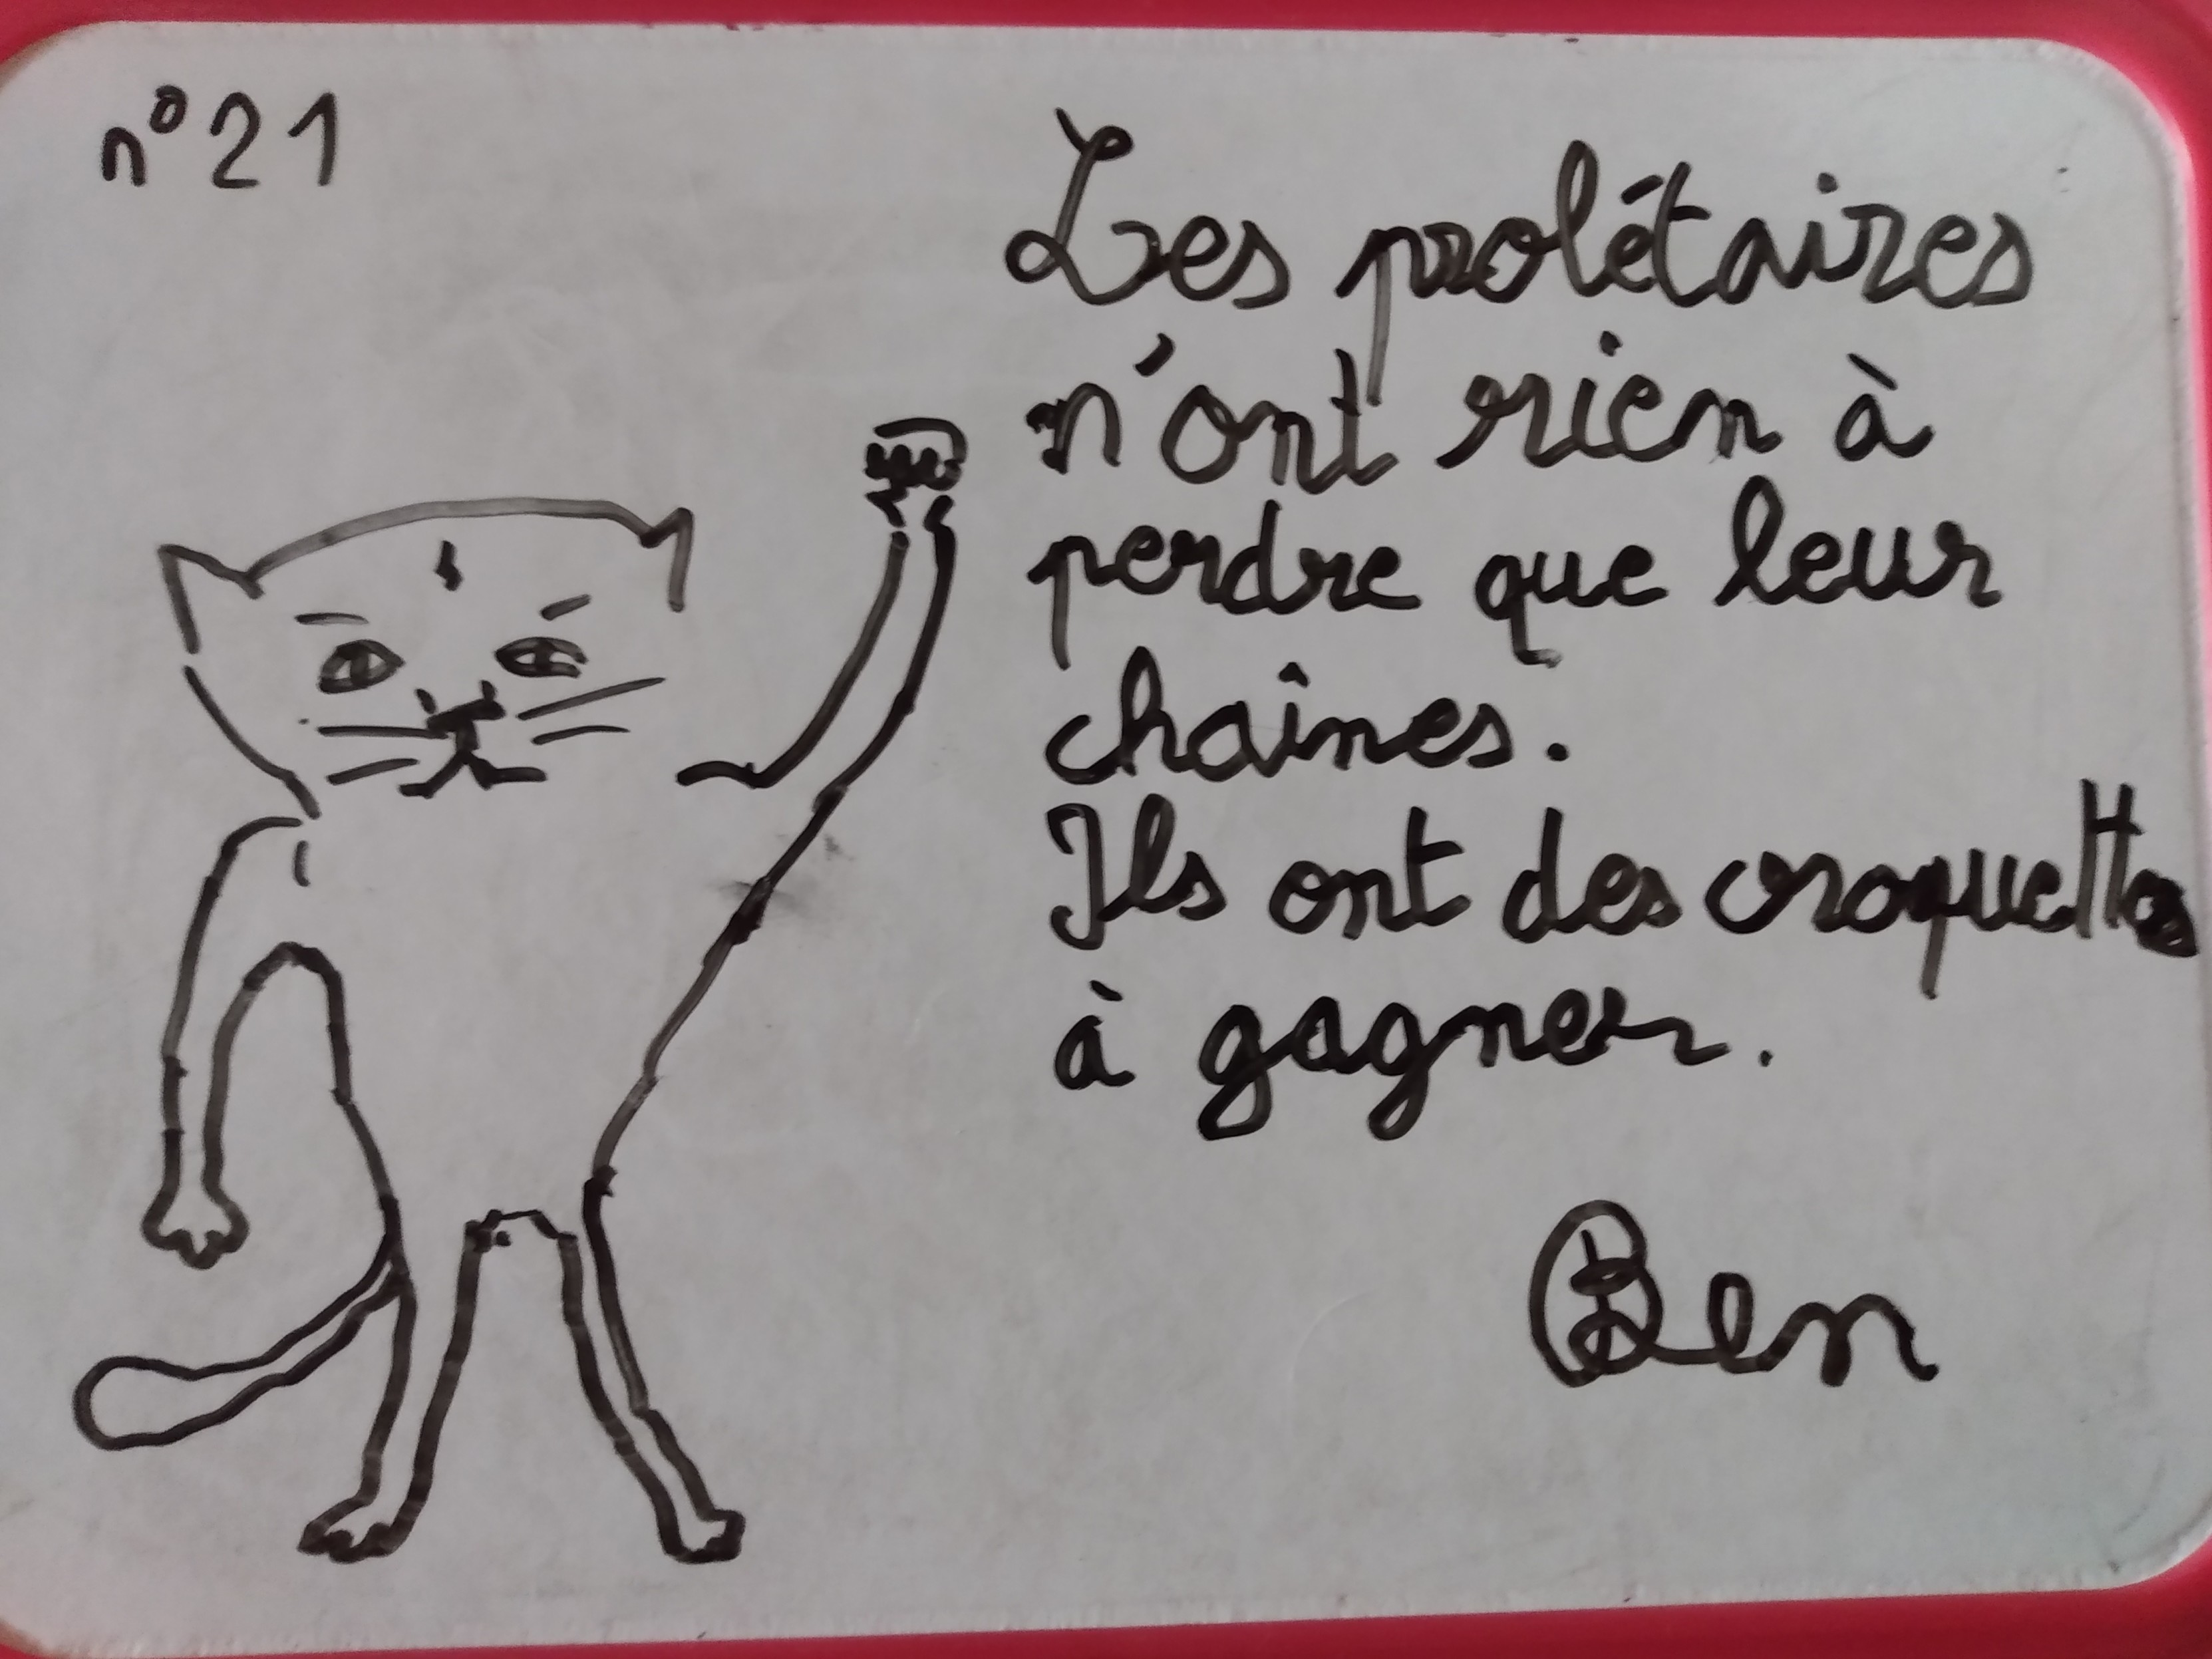 n° 21
Les prolétaires
n'ont rien à
perdre que leur
chaînes.
Ils ont des croquettes
à gagner.
Ben